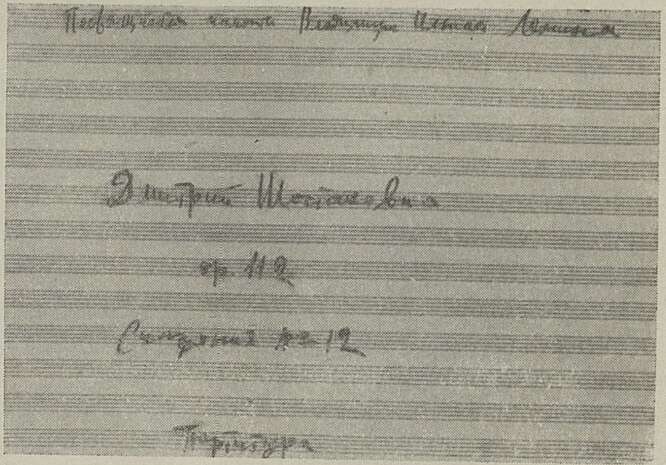 Посвящается памяти Владимира Ильича Ленина
Дмитрий Шостакович
op. 112
Симфония № 12
Партитура